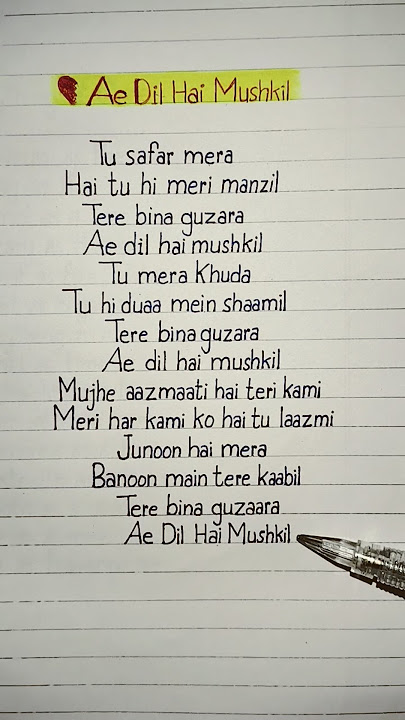 Ae Dil Hai Mushkil
Tu safar mera
Hai tu hi meri manzil
Tere bina guzara
Ae dil hai mushkil
Tu mera Khuda
Tu hi duaa mein shaamil
Tere bina guzara
Ae dil hai mushkil
Mujhe aazmaati hai teri kami
Meri har kami ko hai tu laazmi
Junoon hai mera
Banoon main tere kaabil
Tere bina guzaara
Ae Dil Hai Mushkil